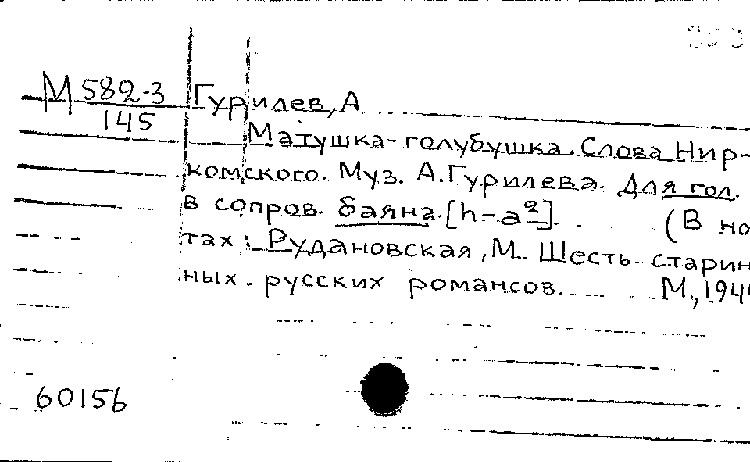 М 582-3
145
Гурилев, А
Матушка-голубушка. Слова Нир-
комского. Муз. А. Гурилева. Для гол.
в сопров. баяна. [h-a²]. (В но
тах: Рудановская, М. Шесть старин
ных русских романсов. М., 194
60156